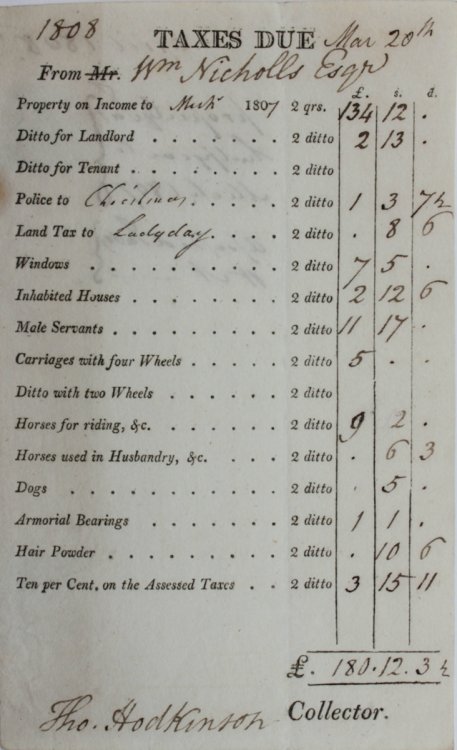 1808
TAXES DUE Mar 20th
From Mr. Wm Nicholls Esqr
£. s. d.
Property on Income to Mich. 1807 2 qrs. 134 12 .
Ditto for Landlord . . . . . . 2 ditto 2 13 .
Ditto for Tenant . . . . . . . 2 ditto
Police to Christmas . . . . 2 ditto 1 3 7½
Land Tax to Ladyday . . . . 2 ditto . 8 6
Windows . . . . . . . . . 2 ditto 7 5 .
Inhabited Houses . . . . . . . 2 ditto 2 12 6
Male Servants . . . . . . . . 2 ditto 11 17 .
Carriages with four Wheels . . . . . 2 ditto 5 . .
Ditto with two Wheels . . . . . . 2 ditto
Horses for riding, &c. . . . . . . 2 ditto 9 2 .
Horses used in Husbandry, &c. . . . 2 ditto . 6 3
Dogs . . . . . . . . . . 2 ditto . 5 .
Armorial Bearings . . . . . . 2 ditto 1 1 .
Hair Powder . . . . . . . . 2 ditto . 10 6
Ten per Cent. on the Assessed Taxes . . 2 ditto 3 15 11
£. 180.12.3½
Tho. Hodkinson Collector.